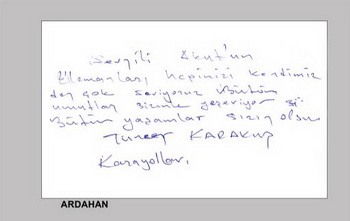 Sevgili Akut'un
Elemanları, hepinizi kendimiz
den çok seviyoruz Bütün
umutlar sizinle yeşeriyor
Bütün yaşamlar sizin olsun
Tuncer KARAKUŞ
Karayolları.
ARDAHAN